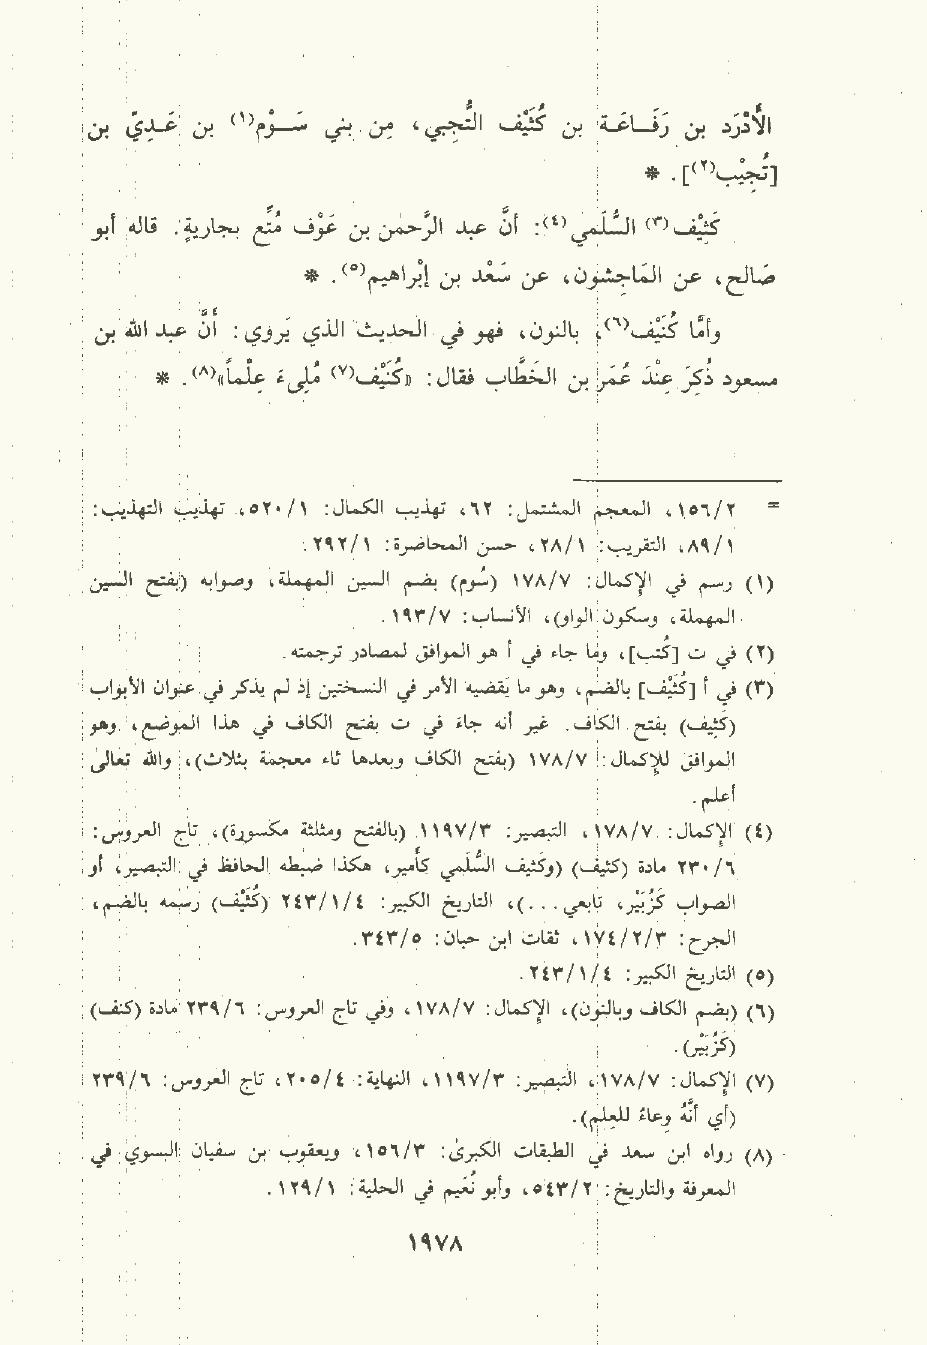 الأَدْرَد بن رَفَـاعَـة بن كُثَيْف التُّجِيبي، مِن بني سَـــوْم(١) بن عَـدِيّ بن
[تُجِيْب(٢)]. *
كَثِيْف(٣) السُّلَمي(٤): أنَّ عبد الرَّحمٰن بن عَوْف مُتِّع بجاريةٍ. قاله أبو
صَالح، عن المَاجِشون، عن سَعْد بن إبْراهيم(٥). *
وأمَّا كُنَيْف(٦)، بالنون، فهو في الحديث الذي يَروي: أنَّ عبد الله بن
مسعود ذُكِرَ عِنْدَ عُمَر بن الخَطَّاب فقال: «كُنَيْف(٧) مُلِىءَ عِلْماً»(٨). *
= ١٥٦/٢، المعجم المشتمل: ٦٢، تهذيب الكمال: ٥٢٠/١، تهذيب التهذيب:
٨٩/١، التقريب: ٢٨/١، حسن المحاضرة: ٢٩٢/١.
(١) رسم في الإكمال: ١٧٨/٧ (سُوم) بضم السين المهملة، وصوابه (بفتح السين
المهملة، وسكون الواو)، الأنساب: ١٩٣/٧.
(٢) في ت [كُتب]، وما جاء في أ هو الموافق لمصادر ترجمته.
(٣) في أ [كُثَيْف] بالضم، وهو ما يَقتضيه الأمر في النسختين إذ لم يذكر في عنوان الأبواب
(كَثِيف) بفتح الكاف. غير أنه جاءَ في ت بفتح الكاف في هذا الموضع، وهو
الموافق للإكمال: ١٧٨/٧ (بفتح الكاف وبعدها ثاء معجمة بثلاث)، والله تعالىٰ
أعلم.
(٤) الإكمال: ١٧٨/٧، التبصير: ١١٩٧/٣ (بالفتح ومثلثة مكسورة)، تاج العروس:
٢٣٠/٦ مادة (كثيف) (وكثيف السُّلمي كأَمير، هكذا ضبطه الحافظ في التبصير، أو
الصواب كَزُبَيْر، تابعي...)، التاريخ الكبير: ٢٤٣/١/٤ (كُثَيْف) رسمه بالضم،
الجرح: ١٧٤/٢/٣، ثقات ابن حبان: ٣٤٣/٥.
(٥) التاريخ الكبير: ٢٤٣/١/٤.
(٦) (بضم الكاف وبالنون)، الإكمال: ١٧٨/٧، وفي تاج العروس: ٢٣٩/٦ مادة (كنف)
(كَزُبَيْر).
(٧) الإكمال: ١٧٨/٧، التبصير: ١١٩٧/٣، النهاية: ٢٠٥/٤، تاج العروس: ٢٣٩/٦
(أي أنَّهُ وعاءٌ للعِلم).
(٨) رواه ابن سعد في الطبقات الكبرىٰ: ١٥٦/٣، ويعقوب بن سفيان البسوي في
المعرفة والتاريخ: ٥٤٣/٢، وأبو نُعَيم في الحلية: ١٢٩/١.
١٩٧٨